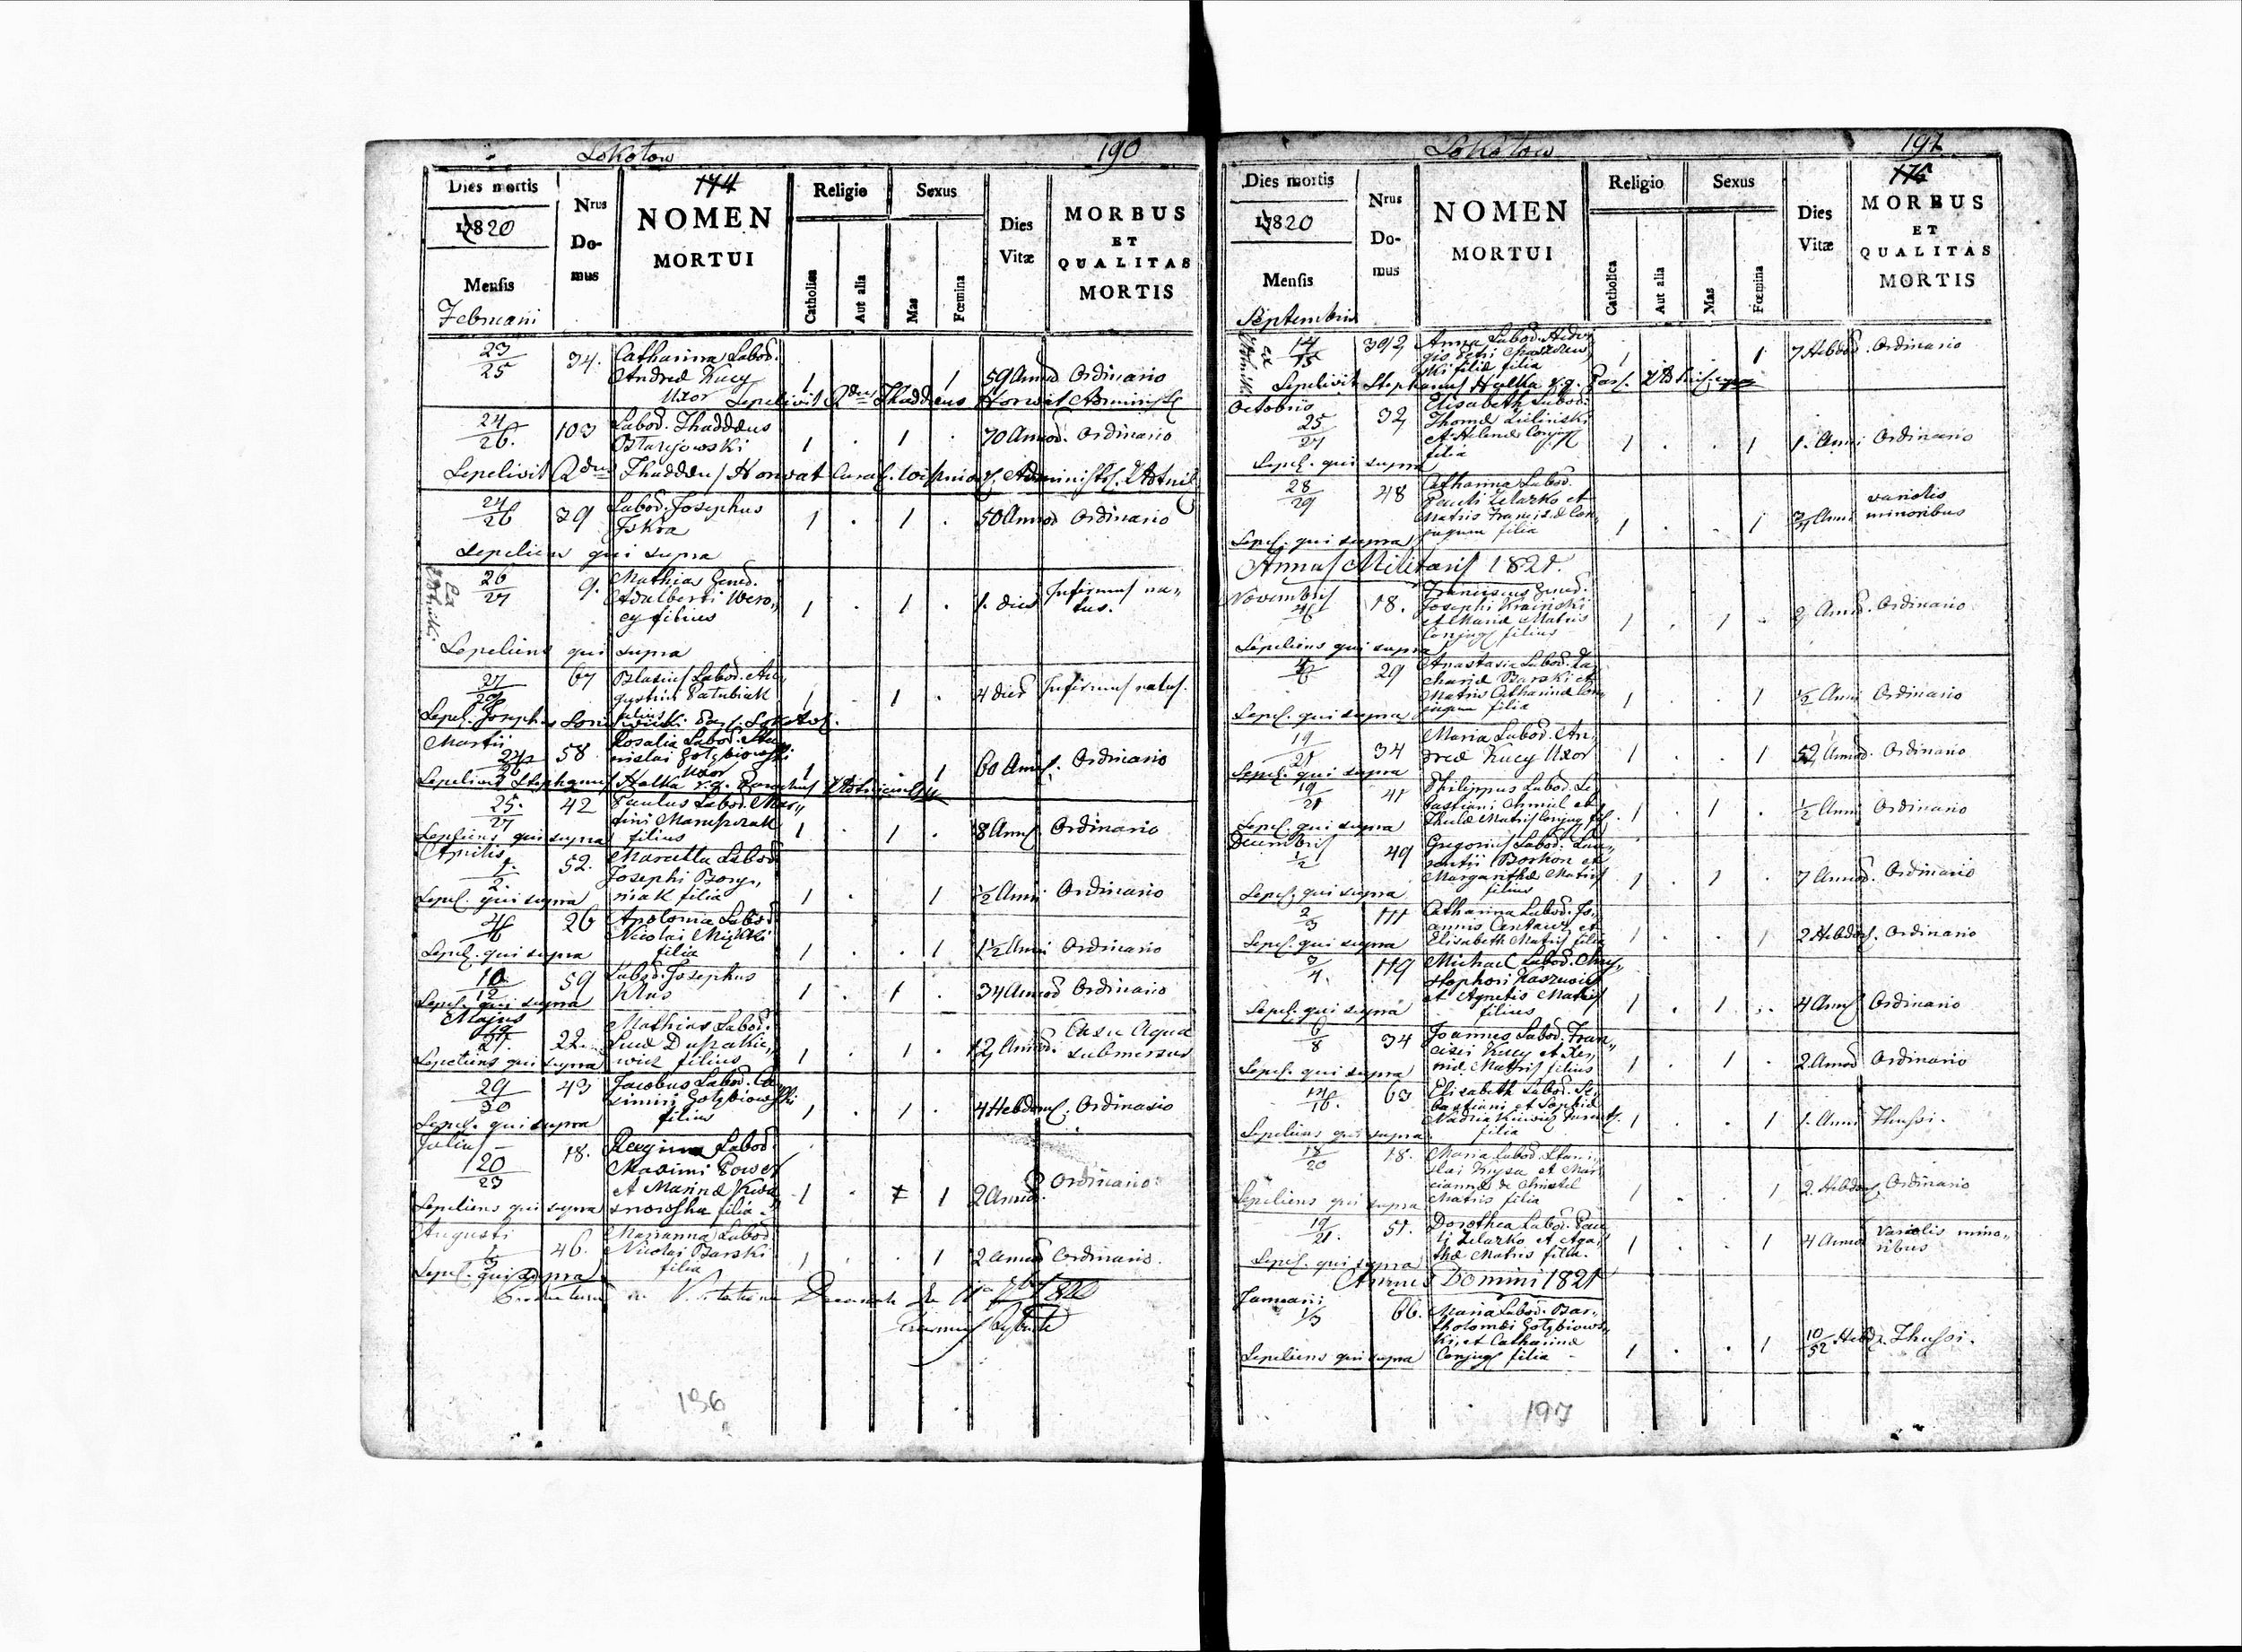 Sokołow
190
Dies mortis
1820
Mensis
Februarii
Nrus Do- mus
174
NOMEN
MORTUI
Religio
Catholica
Aut alia
Sexus
Mas
Fœmina
Dies Vitæ
MORBUS
ET
QUALITAS
MORTIS
23/25 34. Catharina Labod.
Andreæ Kucy 1 1 59 Annor Ordinario
Uxor Sepelivit Rdus Thaddæus Horwat Administr
24/26. 103 Labod. Thaddæus
1 . 1 . 70 Annor. Ordinario
Sepelivit Rdus Thaddæus Horwat
24/26 39 Labod. Josephus
Iskra 1 . 1 . 50 Annor Ordinario
Sepeliens qui supra
26/27 9. Mathias Gened.
Adalberti Wero,,
cy filius 1 . 1 . 1. diei Infirmus na,,
tus.
Sepeliens qui supra
27/29 67 Blasius Labod. Au,,
gustini Patubiak
filius 1 1 . 4 dier Infirmus natus.
Sepel. Joseph
Martii
58 Rosalia Labod. Sta,,
nislai Gołębiowski
Uxor 1 . . 1 60 Annor. Ordinario
Sepelivit Stephanus Halka
25./27 42 Paulus Labod. Mar,,
tini
filius 1 . 1 . 8 Annor Ordinario
Sepeliens qui supra
Aprilis
1./2. 52. Marcella Labod.
Josephi Bory,,
niak filia 1 . 1 ½ Anni Ordinario
Sepel. qui supra
26 Apolonia Labod.
Nicolai
filia 1 . . 1 1½ Anni Ordinario
Sepel. qui supra
10./12 59 Labod. Josephus
Klus 1 . 1 . 34 Annor Ordinario
Sepel. qui supra
Majus
19/21. 22. Mathias Labod.
Lucæ
wicz filius 1 . 1 . 12 Annor. Casu Aqua
submersus
Sepeliens qui supra
29/30 43 Jacobus Labod. Ca,,
simiri Gołębiowski
filius 1 . 1 . 4 Hebdom. Ordinario
Sepel. qui supra
Julius
20/23 18. Regina Labod.
Maximi
et Marinæ
filia 1 . 1 2 Annor. Ordinario
Sepeliens qui supra
Augusti
1/3 46. Marianna Labod.
Nicolai Barski
filia 1 . . 1 2 annor Ordinario.
Sepel. qui supra
136
Sokołow
191
Dies mortis
1820
Mensis
Septembris
Nrus Do- mus
NOMEN
MORTUI
Religio
Catholica
Aut alia
Sexus
Mas
Fœmina
Dies Vitæ
175
MORBUS
ET
QUALITAS
MORTIS
14/15 392 Anna Labod.
filia 1 1 7 Hebdo. Ordinario
Sepelivit Stephanus Halka
Octobris
25/27 32 Elisabeth Labod.
Thomæ Zieliński
et Helenæ Conjug
filia 1 . . 1 1. Anni Ordinario
Sepel. qui supra
28/29 48 Catharina Labod.
Pauli Zelazko et
Matris Franciscæ Con,,
jugum filia 1 . . 1 Anni variolis
minoribus
Sepel. qui supra
Annus Militaris 1821.
Novembris
18. Franciscus Gened.
Josephi Kraiński
et Mariæ Matris
Conjug filius 1 . 1 . 2 Annor. Ordinario
Sepeliens qui supra
29 Anastasia Labod. Za,,
chariæ Barski et
Matris Catharinæ Con,,
jugum filia 1 . . 1 ½ Anni Ordinario
Sepel. qui supra
19/21 34 Maria Labod. An,,
dreæ Kucy Uxor 1 . . 1 52 Annor. Ordinario
Sepel. qui supra
19/21 41 Philippus Labod. Se,,
bastiani Chmiel et
Theclæ Matris Conjug fil. 1 . 1 . ½ Anni Ordinario
Sepel. qui supra
Decembris
1/2 49 Gregorius Labod. Lau,,
rentii Borkon et
Margarithæ Matris
filius 1 . 1 . 7 Annor. Ordinario
Sepel. qui supra
2/3 111 Catharina Labod. Jo,,
annis et
Elisabeth Matris filia 1 . . 1 2 Hebdo. Ordinario
Sepel. qui supra
3/4. 119 Michael Labod. Chry,,
stophori Kaszewicz
et Agnetis Matris
filius 1 . 1 . 4 Annor Ordinario
Sepel. qui supra
6/8 34 Joannes Labod. Fran,,
cisci Kucy et Xe,,
niæ Matris filius 1 . 1 . 2 Annor Ordinario
Sepel. qui supra
14/16. 63 Elisabeth Labod. Se,,
bastiani et Sophiæ
filia 1 . . 1 1. Anni Thussi.
Sepeliens qui supra
18/20 18. Maria Labod. Stani,,
slai et Mar,,
ciannæ de Chmiel
Matris filia 1 . . 1 2. Hebdo. Ordinario
Sepeliens qui supra
19/21. 51. Dorothea Labod. Pau,,
li Zelazko et Aga,,
thæ Matris filia. 1 . . 1 4 Annor Variolis mino,,
ribus
Sepel. qui supra
Annus Domini 1821
Januarii
1/3 66. Maria Labod. Bar,,
tholomæi Gołębiows,,
ki, et Catharinæ
Conjug filia 1 . . 1 10/52 Hebd. Thussi.
Sepeliens qui supra
197